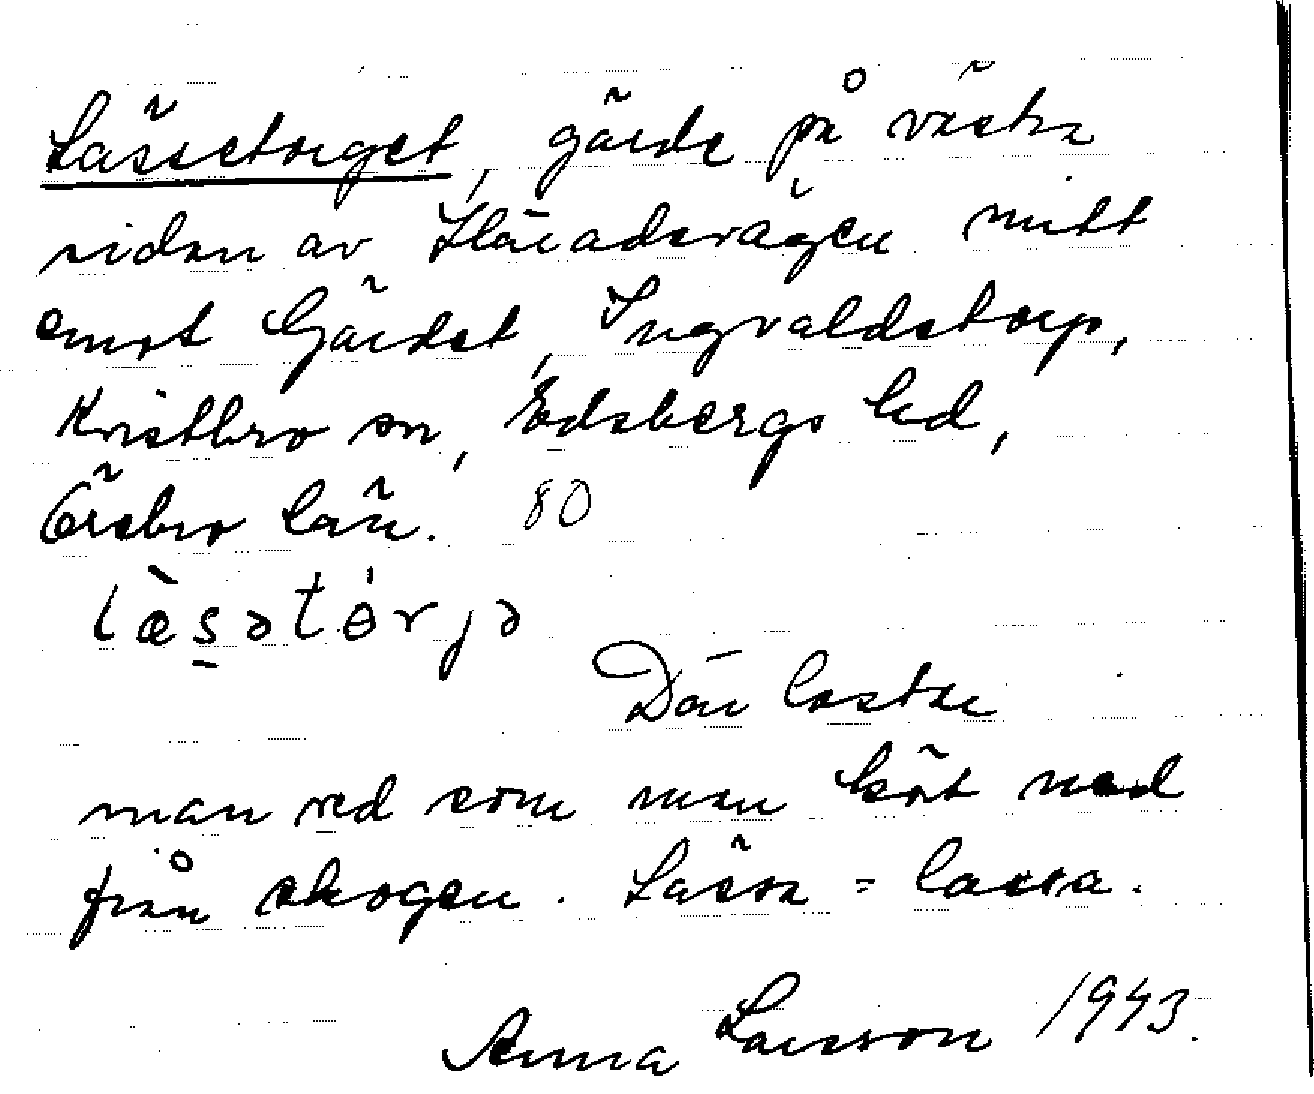 Lässetorget, gärde på västra
sidan av Häradsvägen mitt
emot Gärdet, Ingvaldstorp,
Kvistbro sn, Edsbergs hd,
Örebro län. 80
læsətɵrjə
Där lastar
man ved som man kört ned
från skogen. Lässa = lassa.
Anna Larsson 1943.